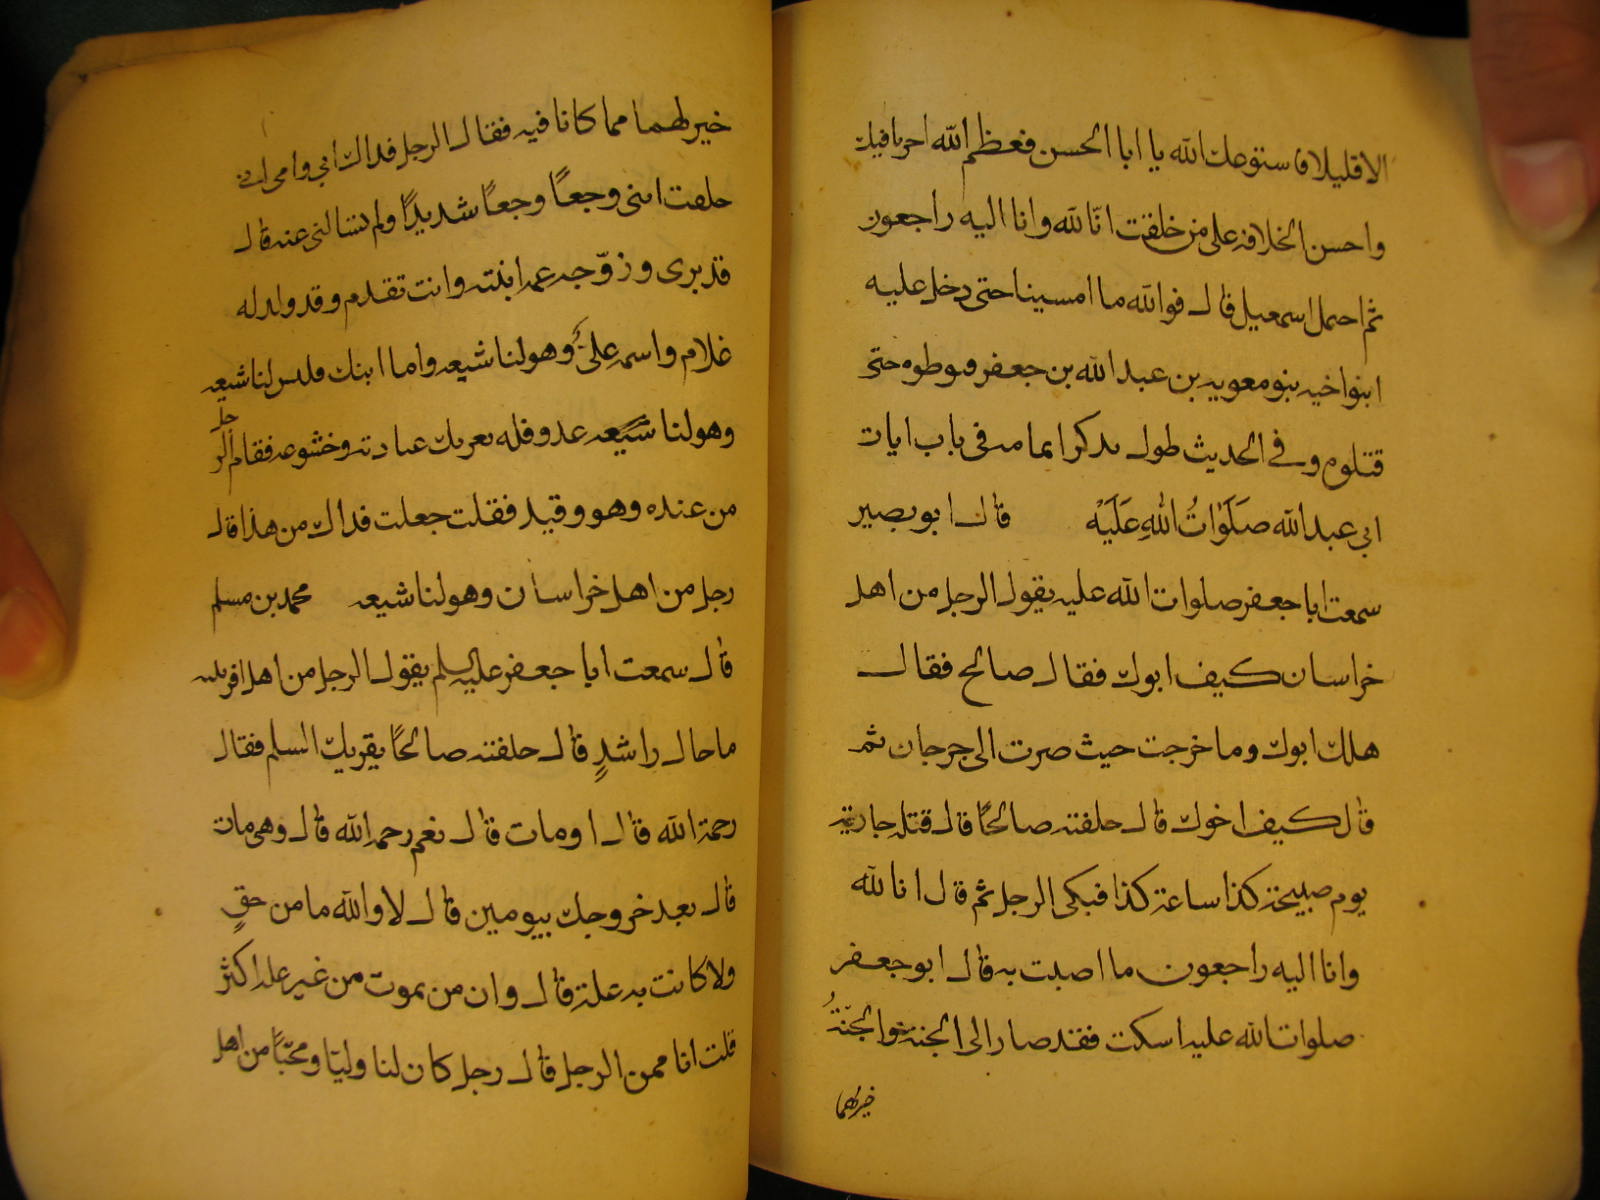 الا قليلا فاستودعك الله يا ابا الحسن فعظم الله اجرنا فيك
واحسن الخلافة على من خلفت انّا لله وانا اليه راجعون
ثم احتمل اسمعيل قال فوالله ما امسينا حتى دخل عليه
ابنوا اخيه بنو معويه بن عبد الله بن جعفر فوطوه حتى
قتلوه وفي الحديث طول يذكر ايمامه في باب ايات
ابي عبد الله صَلَوَاتُ اللهِ عَلَيْه قال ابو بصير
سمعت ابا جعفر صلوات الله عليه يقول الرجل من اهل
خراسان كيف ابوك فقال صالح فقال
هلك ابوك وما خرجت حيث صرت الى جرجان ثم
قال كيف اخوك قال خلفته صالحًا قال قتله جاريه
يوم صبيحة كذا ساعة كذا فبكى الرجل ثم قال انا لله
وانا اليه راجعون ما اصبت به قال ابو جعفر
صلوات الله عليه اسكت فقد صار الى الجنة والجنّةُ
خير لهما
خير لهما مما كانا فيه فقال الرجل فداك ابي وامي اني
خلفت ابني وجعًا وجعًا شديدًا ولم تسالني عنه قال
قد برى وزوّجه عمه ابنته وانت تقدم وقد ولد له
غلام واسمه علىّ وهو لنا شيعه واما ابنك فليس لنا شيعه
وهو لنا عدو فله يعريك عبادته وخشوعه فقام الرجل
من عنده وهو وقيد فقلت جعلت فداك من هذا قال
رجل من اهل خراسان وهو لنا شيعه محمد بن مسلم
قال سمعت ابا جعفر عليه السلم يقول الرجل من اهل افريقيه
ما حال راشدٍ قال خلفته صالحًا يقريك السلم فقال
رحمة الله قال او مات قال نعم رحمه الله قال وهى مات
قال بعد خروجك بيومين قال لا والله ما من حقٍ
ولا كانت به علة قال وان من يموت من غير علة اكثر
قلت انا ممن الرجل قال رجل كان لنا وليّا ومحبًّا من اهل